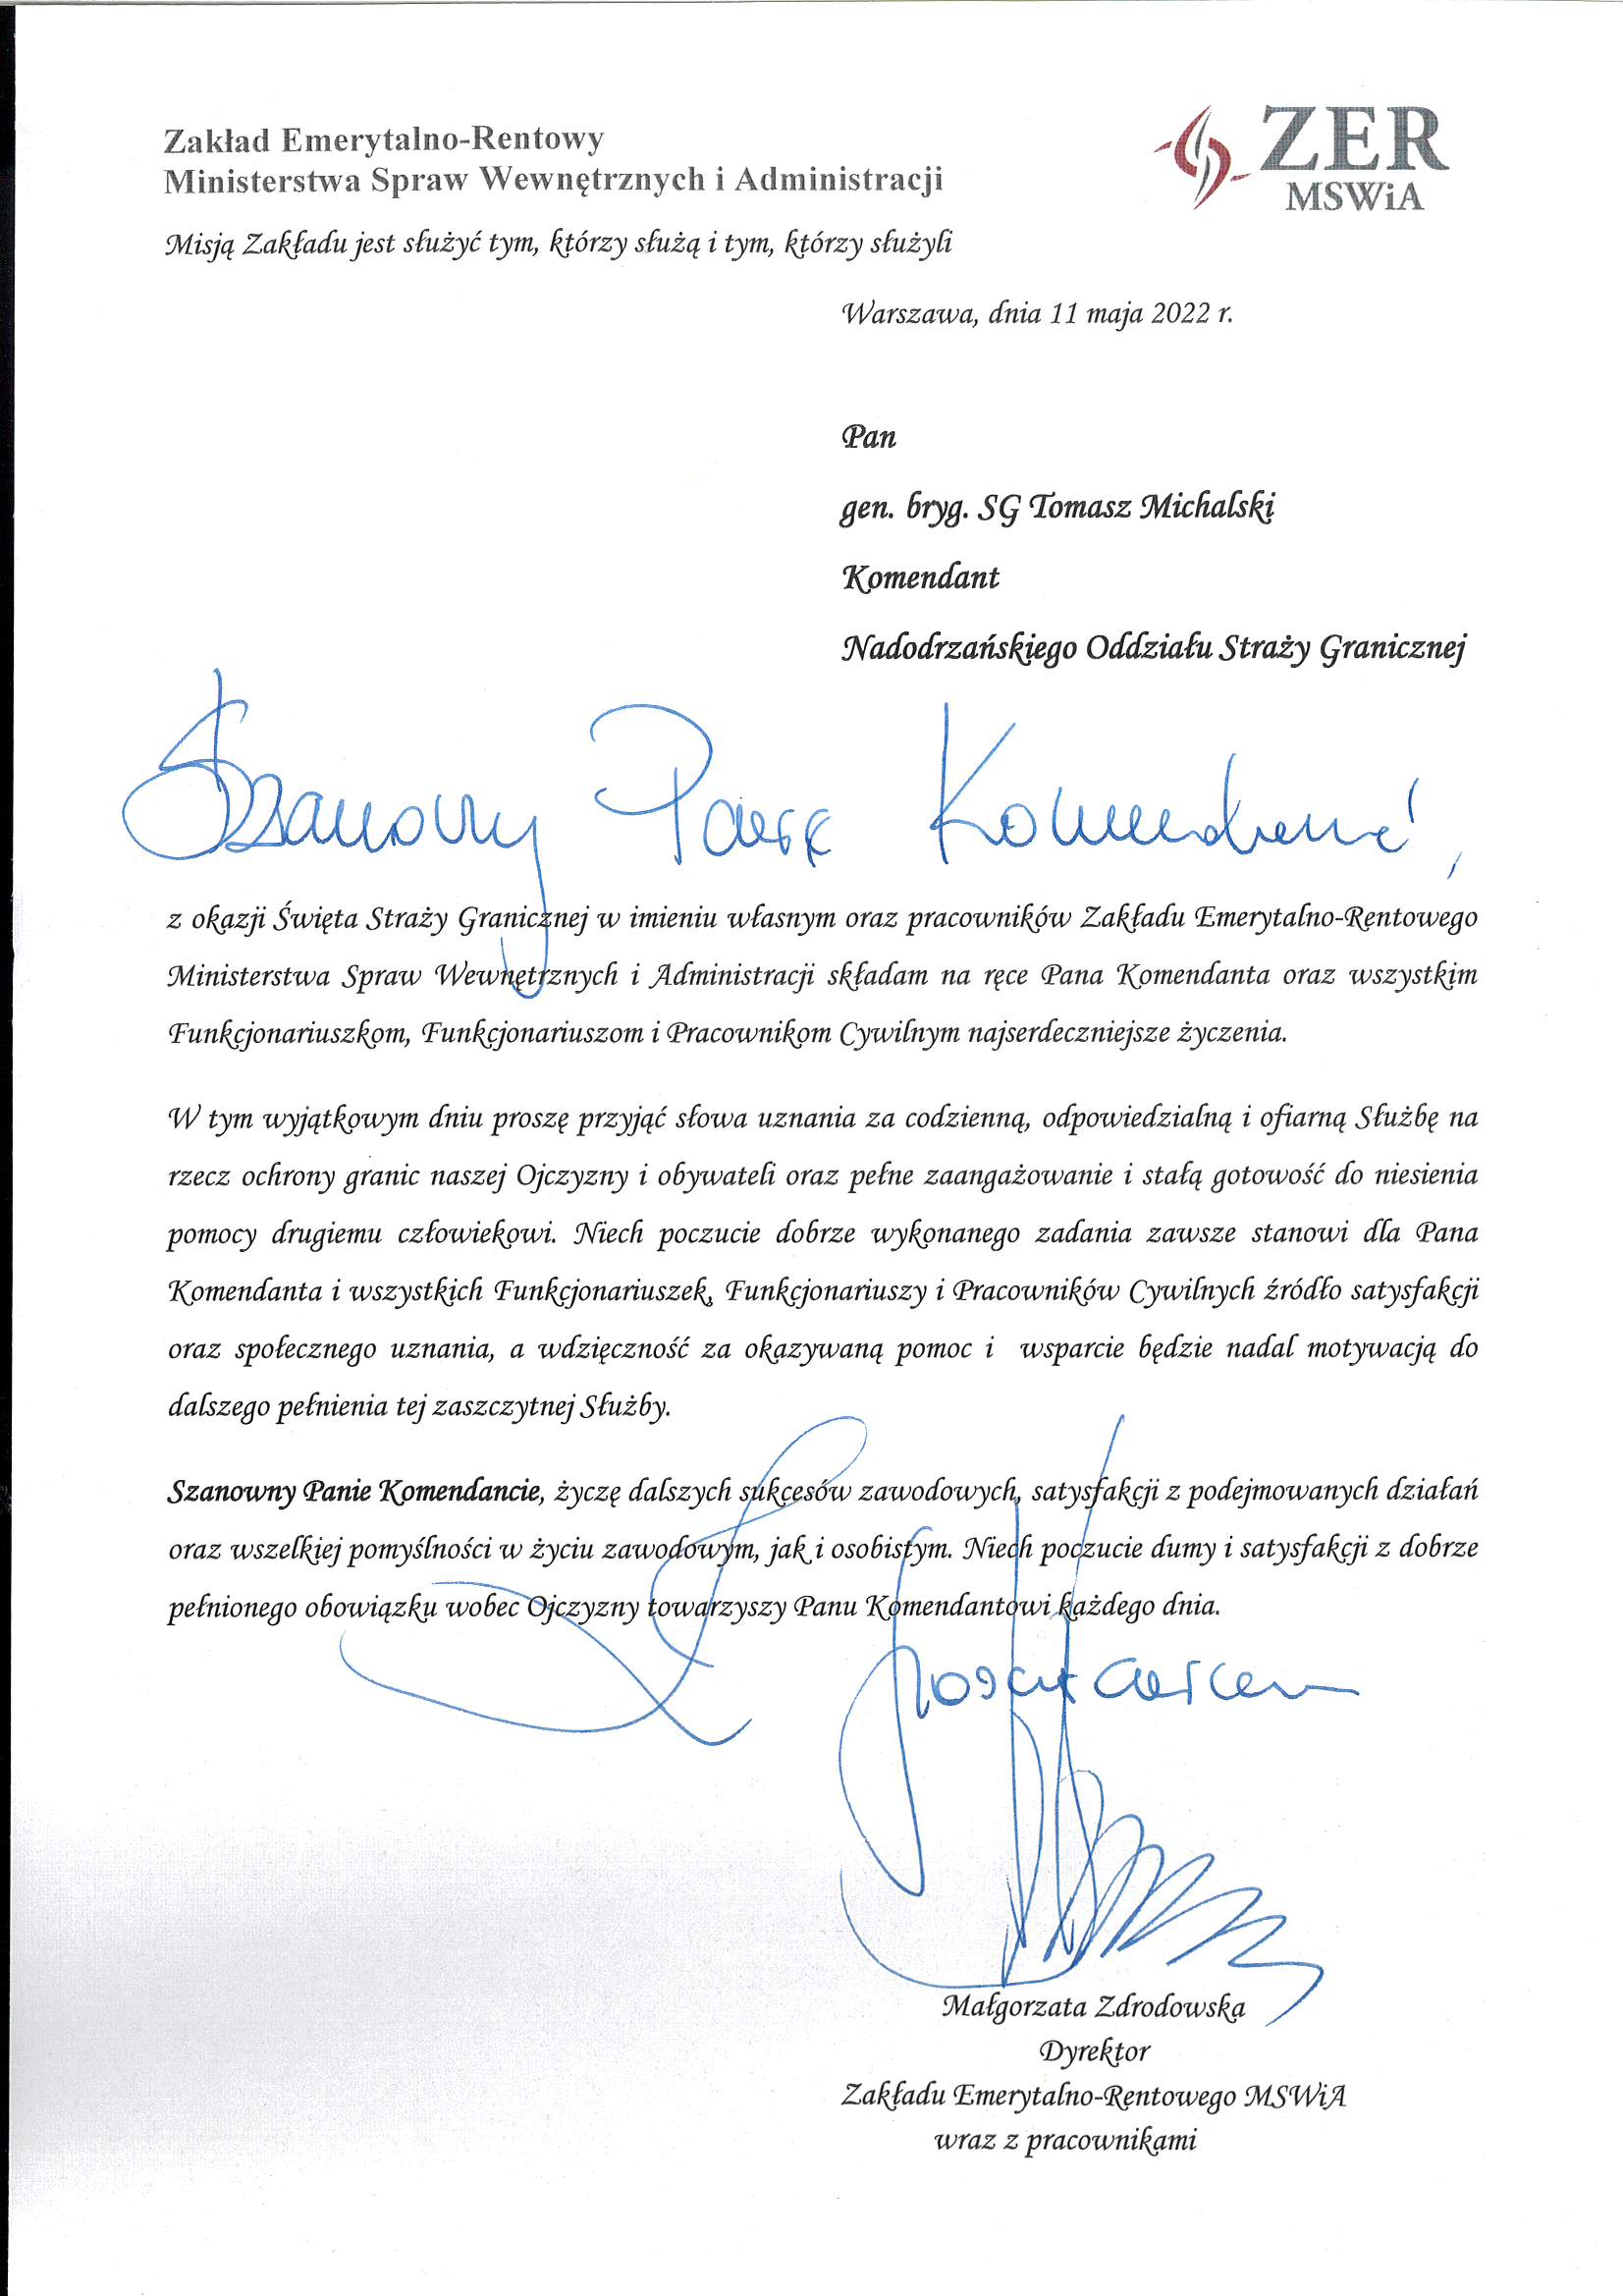 Zakład Emerytalno-Rentowy
Ministerstwa Spraw Wewnętrznych i Administracji
ZER
MSWiA
Misją Zakładu jest służyć tym, którzy służą i tym, którzy służyli
Warszawa, dnia 11 maja 2022 r.
Pan
gen. bryg. SG Tomasz Michalski
Komendant
Nadodrzańskiego Oddziału Straży Granicznej
Szanowny Panie Komendancie,
z okazji Święta Straży Granicznej w imieniu własnym oraz pracowników Zakładu Emerytalno-Rentowego
Ministerstwa Spraw Wewnętrznych i Administracji składam na ręce Pana Komendanta oraz wszystkim
Funkcjonariuszkom, Funkcjonariuszom i Pracownikom Cywilnym najserdeczniejsze życzenia.
W tym wyjątkowym dniu proszę przyjąć słowa uznania za codzienną, odpowiedzialną i ofiarną Służbę na
rzecz ochrony granic naszej Ojczyzny i obywateli oraz pełne zaangażowanie i stałą gotowość do niesienia
pomocy drugiemu człowiekowi. Niech poczucie dobrze wykonanego zadania zawsze stanowi dla Pana
Komendanta i wszystkich Funkcjonariuszek, Funkcjonariuszy i Pracowników Cywilnych źródło satysfakcji
oraz społecznego uznania, a wdzięczność za okazywaną pomoc i wsparcie będzie nadal motywacją do
dalszego pełnienia tej zaszczytnej Służby.
Szanowny Panie Komendancie, życzę dalszych sukcesów zawodowych, satysfakcji z podejmowanych działań
oraz wszelkiej pomyślności w życiu zawodowym, jak i osobistym. Niech poczucie dumy i satysfakcji z dobrze
pełnionego obowiązku wobec Ojczyzny towarzyszy Panu Komendantowi każdego dnia.
Małgorzata Zdrodowska
Dyrektor
Zakładu Emerytalno-Rentowego MSWiA
wraz z pracownikami